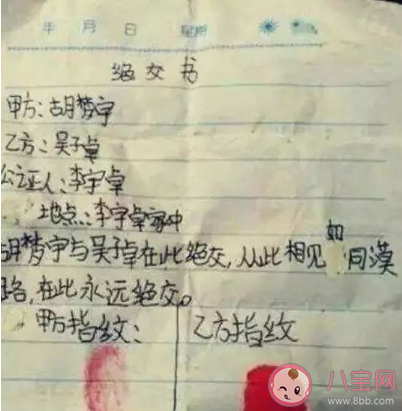 年 月 日 星期
绝交书
甲方:胡梦宇
乙方:吴子卓
公证人:李宇卓
地点:李宇卓家中
胡梦宇与吴子卓在此绝交,从此相见如同漠
路,在此永远绝交。
甲方指纹: 乙方指纹
八宝网
www.8bb.com